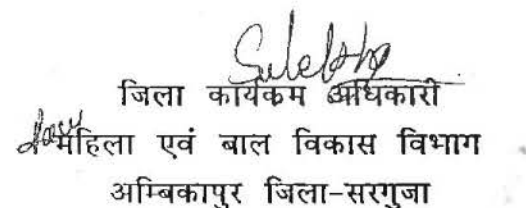 जिला कार्यकम अधिकारी
महिला एवं बाल विकास विभाग
अम्बिकापुर जिला-सरगुजा